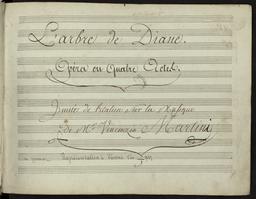 L'arbre de Diane.
Opéra en Quatre Actes.
de l'Italien sur la Musique
De Mr Vincenzo Martini
Représentation